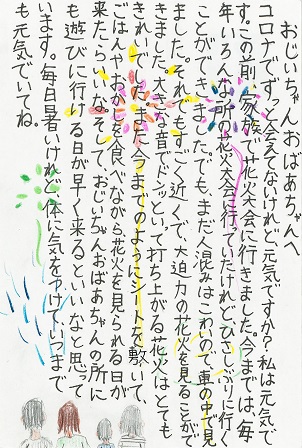 おじいちゃんおばあちゃんへ
コロナでずっと会えてないけれど、元気ですか？私は元気で
す。この前、家族で花火大会に行きました。今までは、毎
年いろんな所の花火大会に行っていたけれど、ひさしぶりに行く
ことができました。でも、まだ人混みはこわいので、車の中で見
ました。それでもすごく近くで、大迫力の花火を見ることがで
きました。大きな音でドンッといって打ち上がる花火はとても
きれいでした。また今までのようにシートを敷いて、
ごはんやおかしを食べながら花火を見られる日が
来たらいいな。そして、おじいちゃんおばあちゃんの所に
も遊びに行ける日が早く来るといいなと思って
います。毎日暑いけれど、体に気をつけて、いつまで
も元気でいてね。